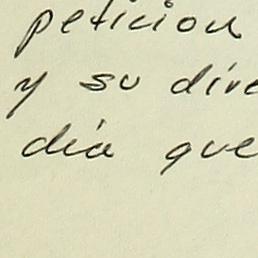 peticion
y su dire
día que